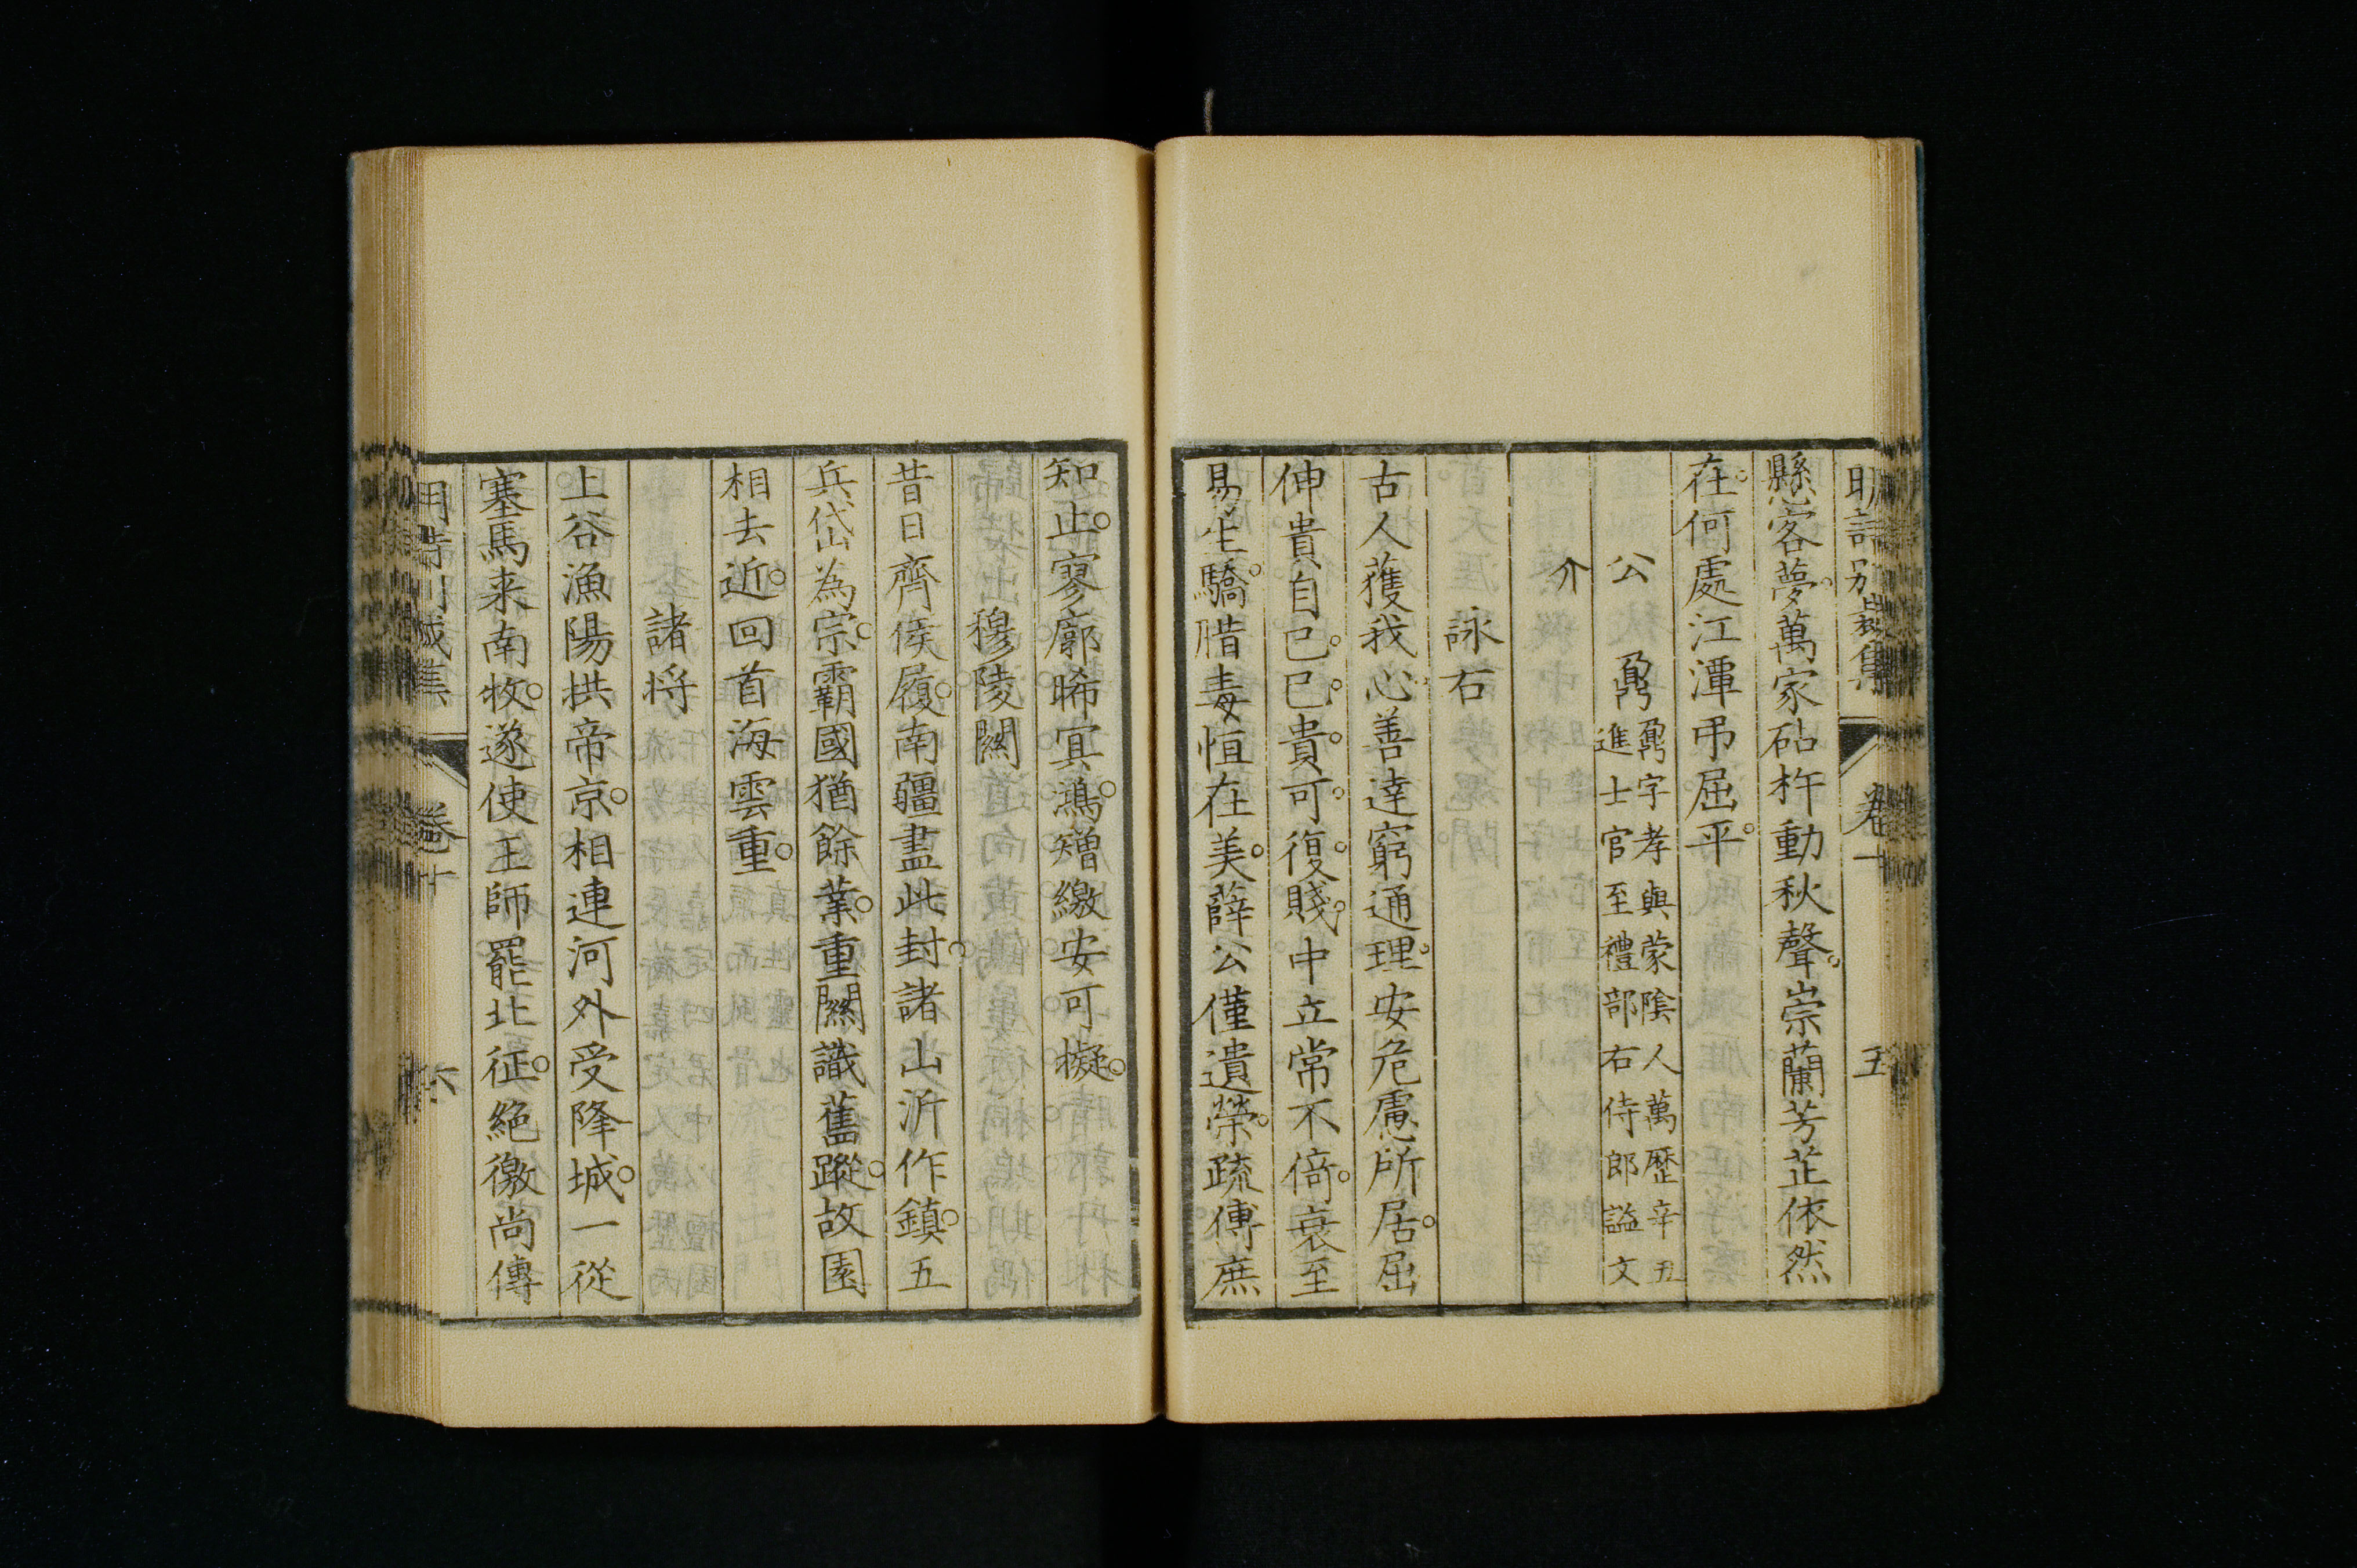 明詩別裁集 卷十 五
懸客夢萬家砧杵動秋聲崇蘭芳芷依然
在何處江潭弔屈平
公鼐鼐字孝與蒙陰人萬歷辛丑
進士官至禮部右侍郎諡文
介
詠古
古人獲我心善達窮通理安危慮所居屈
伸貴自已已貴可復賤中立常不倚衰至
易生驕腊毒恒在美薛公僅遺榮疏傅庶
知止寥廓晞冥鴻矰繳安可擬
穆陵關
昔日齊侯履南疆盡此封諸山沂作鎮五
兵岱為宗霸國猶餘業重關識舊蹤故園
相去近回首海雲重
諸將
上谷漁陽拱帝京相連河外受降城一從
塞馬来南牧遂使王師罷北征絕徼尚傳
卷十 六